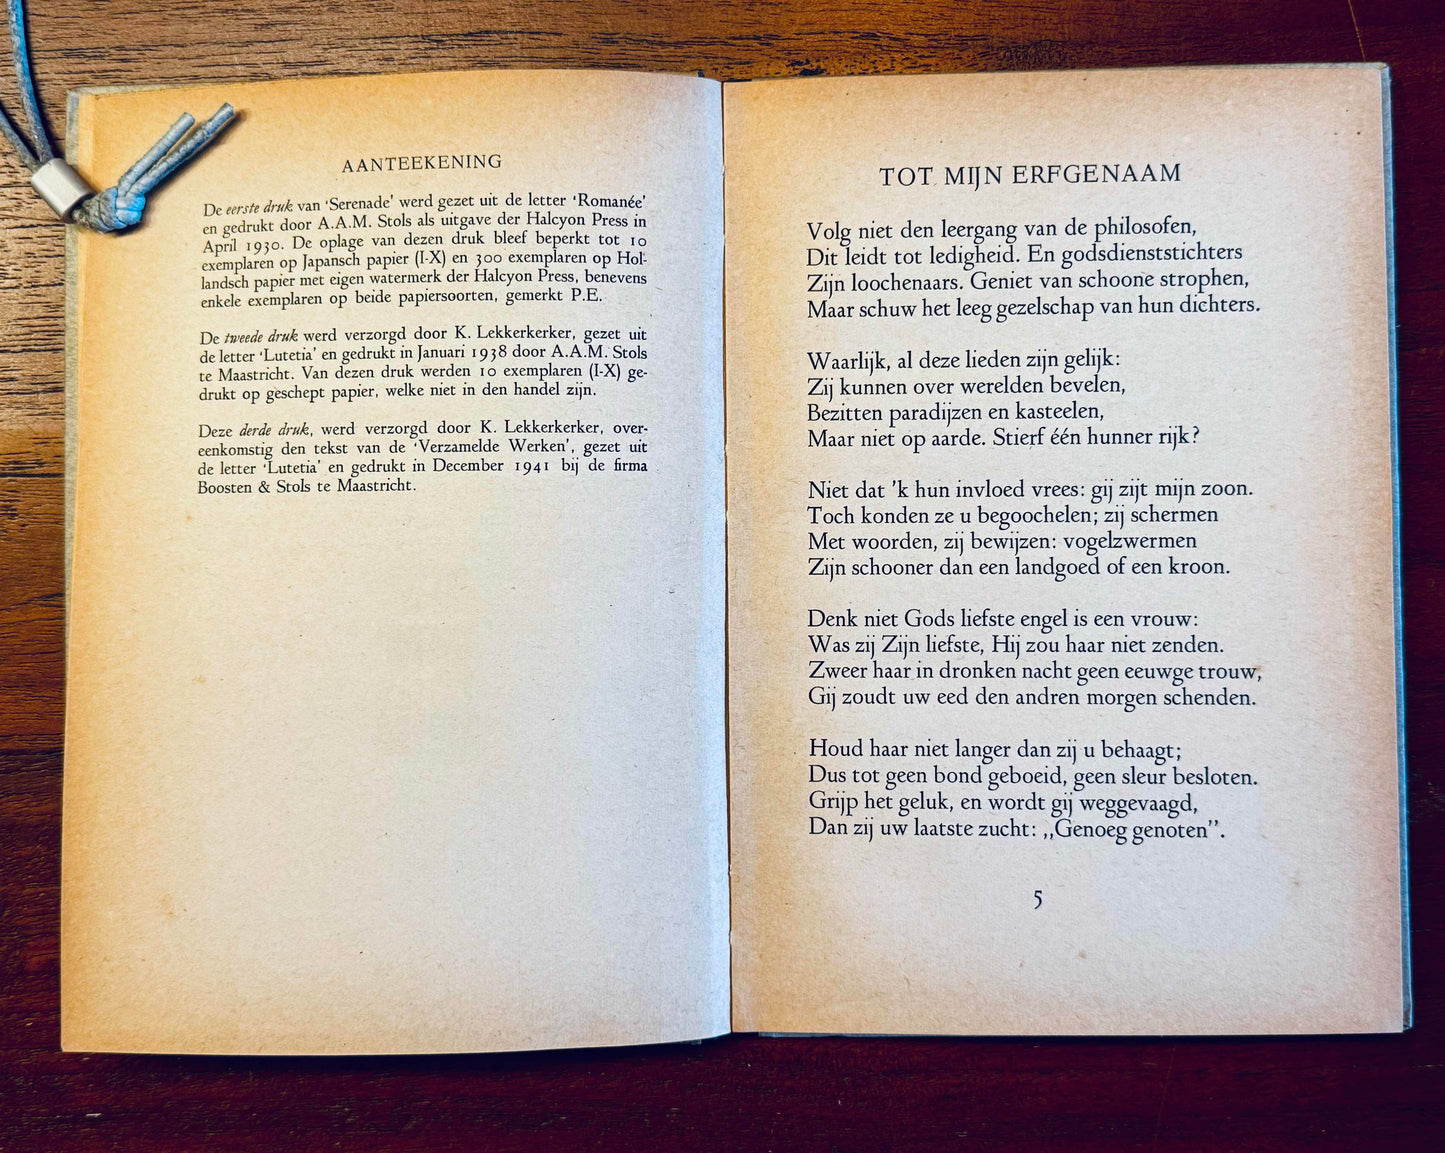 AANTEEKENING
De eerste druk van ‘Serenade’ werd gezet uit de letter ‘Romanée’
en gedrukt door A.A.M. Stols als uitgave der Halcyon Press in
April 1930. De oplage van dezen druk bleef beperkt tot 10
exemplaren op Japansch papier (I-X) en 300 exemplaren op Hol-
landsch papier met eigen watermerk der Halcyon Press, benevens
enkele exemplaren op beide papiersoorten, gemerkt P.E.
De tweede druk werd verzorgd door K. Lekkerkerker, gezet uit
de letter ‘Lutetia’ en gedrukt in Januari 1938 door A.A.M. Stols
te Maastricht. Van dezen druk werden 10 exemplaren (I-X) ge-
drukt op geschept papier, welke niet in den handel zijn.
Deze derde druk, werd verzorgd door K. Lekkerkerker, over-
eenkomstig den tekst van de ‘Verzamelde Werken’, gezet uit
de letter ‘Lutetia’ en gedrukt in December 1941 bij de firma
Boosten & Stols te Maastricht.
TOT MIJN ERFGENAAM
Volg niet den leergang van de philosofen,
Dit leidt tot ledigheid. En godsdienststichters
Zijn loochenaars. Geniet van schoone strophen,
Maar schuw het leeg gezelschap van hun dichters.
Waarlijk, al deze lieden zijn gelijk:
Zij kunnen over werelden bevelen,
Bezitten paradijzen en kasteelen,
Maar niet op aarde. Stierf één hunner rijk?
Niet dat ’k hun invloed vrees: gij zijt mijn zoon.
Toch konden ze u begoochelen; zij schermen
Met woorden, zij bewijzen: vogelzwermen
Zijn schooner dan een landgoed of een kroon.
Denk niet Gods liefste engel is een vrouw:
Was zij Zijn liefste, Hij zou haar niet zenden.
Zweer haar in dronken nacht geen eeuwge trouw,
Gij zoudt uw eed den andren morgen schenden.
Houd haar niet langer dan zij u behaagt;
Dus tot geen bond geboeid, geen sleur besloten.
Grijp het geluk, en wordt gij weggevaagd,
Dan zij uw laatste zucht: ,,Genoeg genoten”.
5